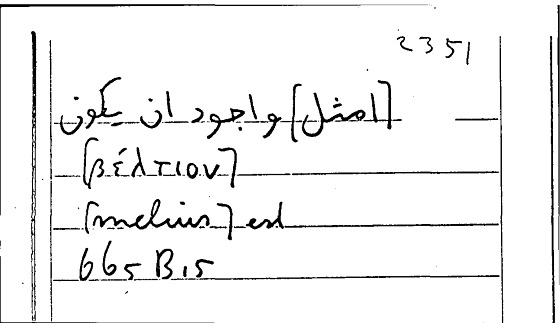 2351
[امثل] واجود ان يكون
[βέλτιον]
[melius] est
665 B 15